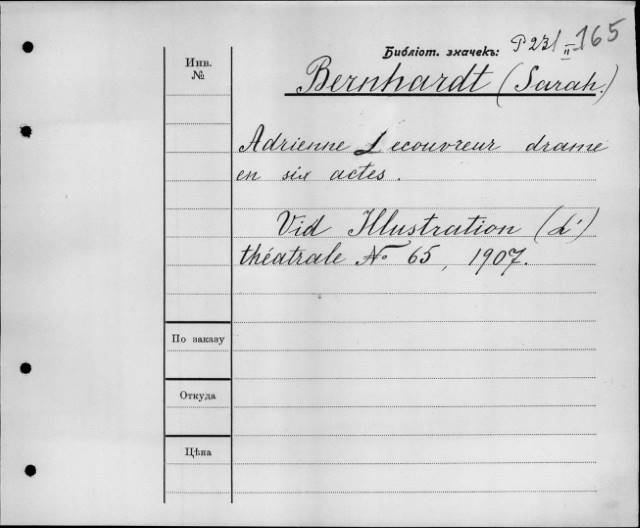 Библіот. значекъ: P 231/II-165
Инв.
№
Bernhardt (Sarah.)
Adrienne Lecouvreur drame
en six actes.
Vid Illustration (L')
théatrale № 65, 1907.
По заказу
Откуда
Цѣна